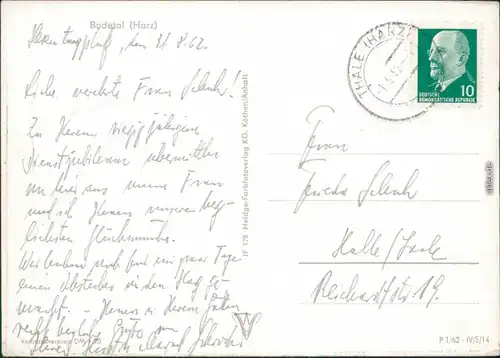 Bodetal (Harz)
Hexentanzplatz, den 31.8.62.
Liebe, verehrte Frau Schuh!
Zu Ihrem vierzigjährigen
Dienstjubiläum übermitteln
meine Frau
und ich Ihnen unsere herz-
lichsten Glückwünsche.
Wir haben für ein paar Tage
einen Abstecher in den Harz ge-
macht. Ihnen u. Ihrem
recht herzliche Grüße von
Ihrem
Verbraucherpreis DM 0,20
IF 178 Heldge-Farbfotoverlag KG, Köthen/Anhalt
THALE (HARZ)
DEUTSCHE
DEMOKRATISCHE REPUBLIK
10
Frau
Frieda Schuh
Halle/Saale
Reichardtstr. 19.
P 1/62 - IV/5/14